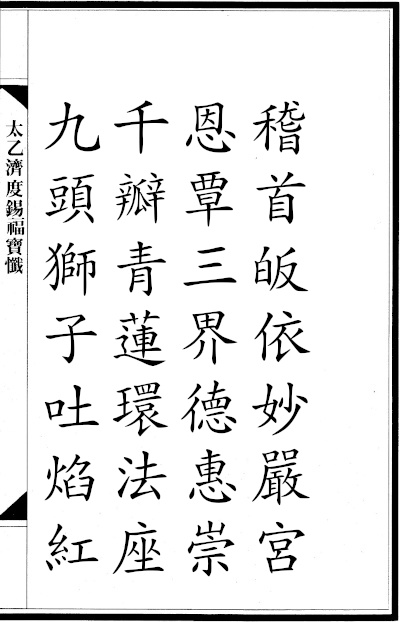 稽首皈依妙嚴宮
恩覃三界德惠崇
千瓣青蓮環法座
九頭獅子吐焰紅
太乙濟度錫福寶懺